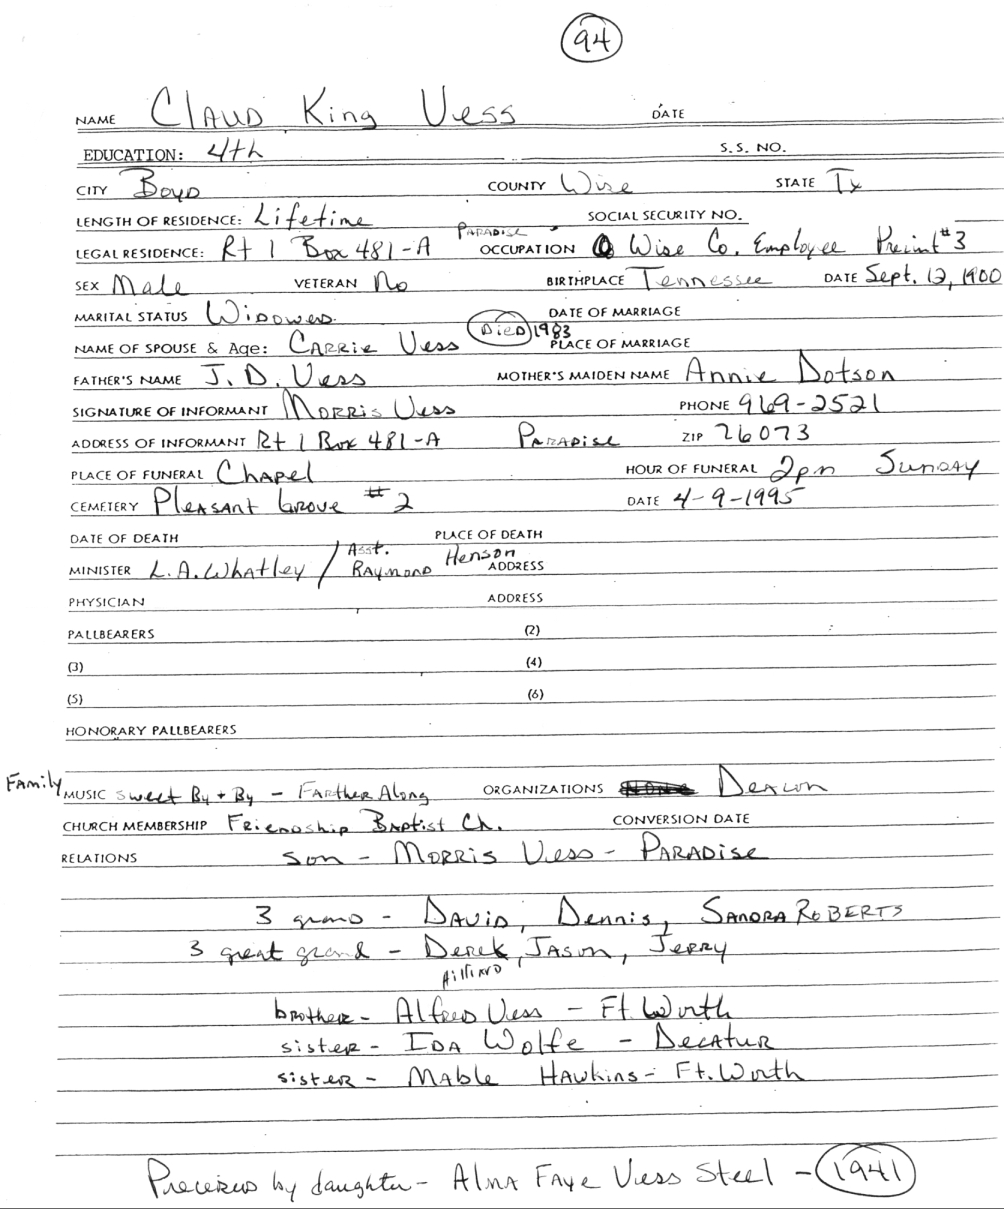 94
NAME Claud King Vess DATE
EDUCATION: 4th S.S. NO.
CITY Boyd COUNTY Wise STATE Tx
LENGTH OF RESIDENCE: Lifetime SOCIAL SECURITY NO.
Paradise
LEGAL RESIDENCE: Rt 1 Box 481-A OCCUPATION Wise Co. Employee Precinct #3
SEX Male VETERAN No BIRTHPLACE Tennessee DATE Sept. 12, 1900
MARITAL STATUS Widowed DATE OF MARRIAGE
NAME OF SPOUSE & Age: Carrie Vess Died 1983 PLACE OF MARRIAGE
FATHER'S NAME J. D. Vess MOTHER'S MAIDEN NAME Annie Dotson
SIGNATURE OF INFORMANT Morris Vess PHONE 969-2521
ADDRESS OF INFORMANT Rt 1 Box 481-A Paradise ZIP 76073
PLACE OF FUNERAL Chapel HOUR OF FUNERAL 2pm Sunday
CEMETERY Pleasant Grove #2 DATE 4-9-1995
DATE OF DEATH PLACE OF DEATH
MINISTER L.A. Whatley / Asst. Raymond Henson ADDRESS
PHYSICIAN ADDRESS
PALLBEARERS (2)
(3) (4)
(5) (6)
HONORARY PALLBEARERS
Family MUSIC Sweet By + By - Farther Along ORGANIZATIONS Deacon
CHURCH MEMBERSHIP Friendship Baptist Ch. CONVERSION DATE
RELATIONS son - Morris Vess - Paradise
3 grand - David, Dennis, Sandra Roberts
3 great grand - Derek, Jason, Jerry
brother - Alfred Vess - Ft. Worth
sister - Ida Wolfe - Decatur
sister - Mable Hawkins - Ft. Worth
by daughter - Alma Faye Vess Steel - 1941